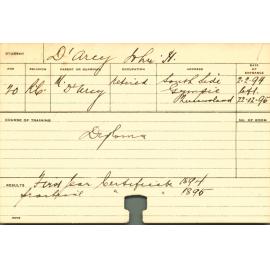 STUDENT D'Arcy John H.
AGE RELIGION PARENT OR GUARDIAN OCCUPATION ADDRESS DATE OF ENTRANCE
20 R.C. Mr D'Arcy retired South Side Gympie Queensland 2.2.94 left 22-12-95
COURSE OF TRAINING NO. OF ROOM
Diploma
RESULTS First Year Certificate 1894
" " 1895
NOTE